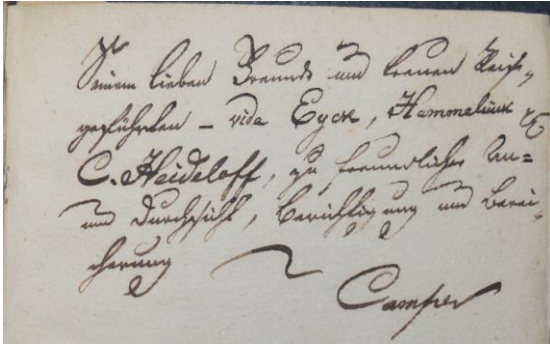 Seinem lieben Freunde und treuen Reise-
gefährten – vide Eyck, Hemmelinck &
C. Heideloff, zu freundlicher An=
und Durchsicht, Berichtigung und Berei-
cherung
Camper